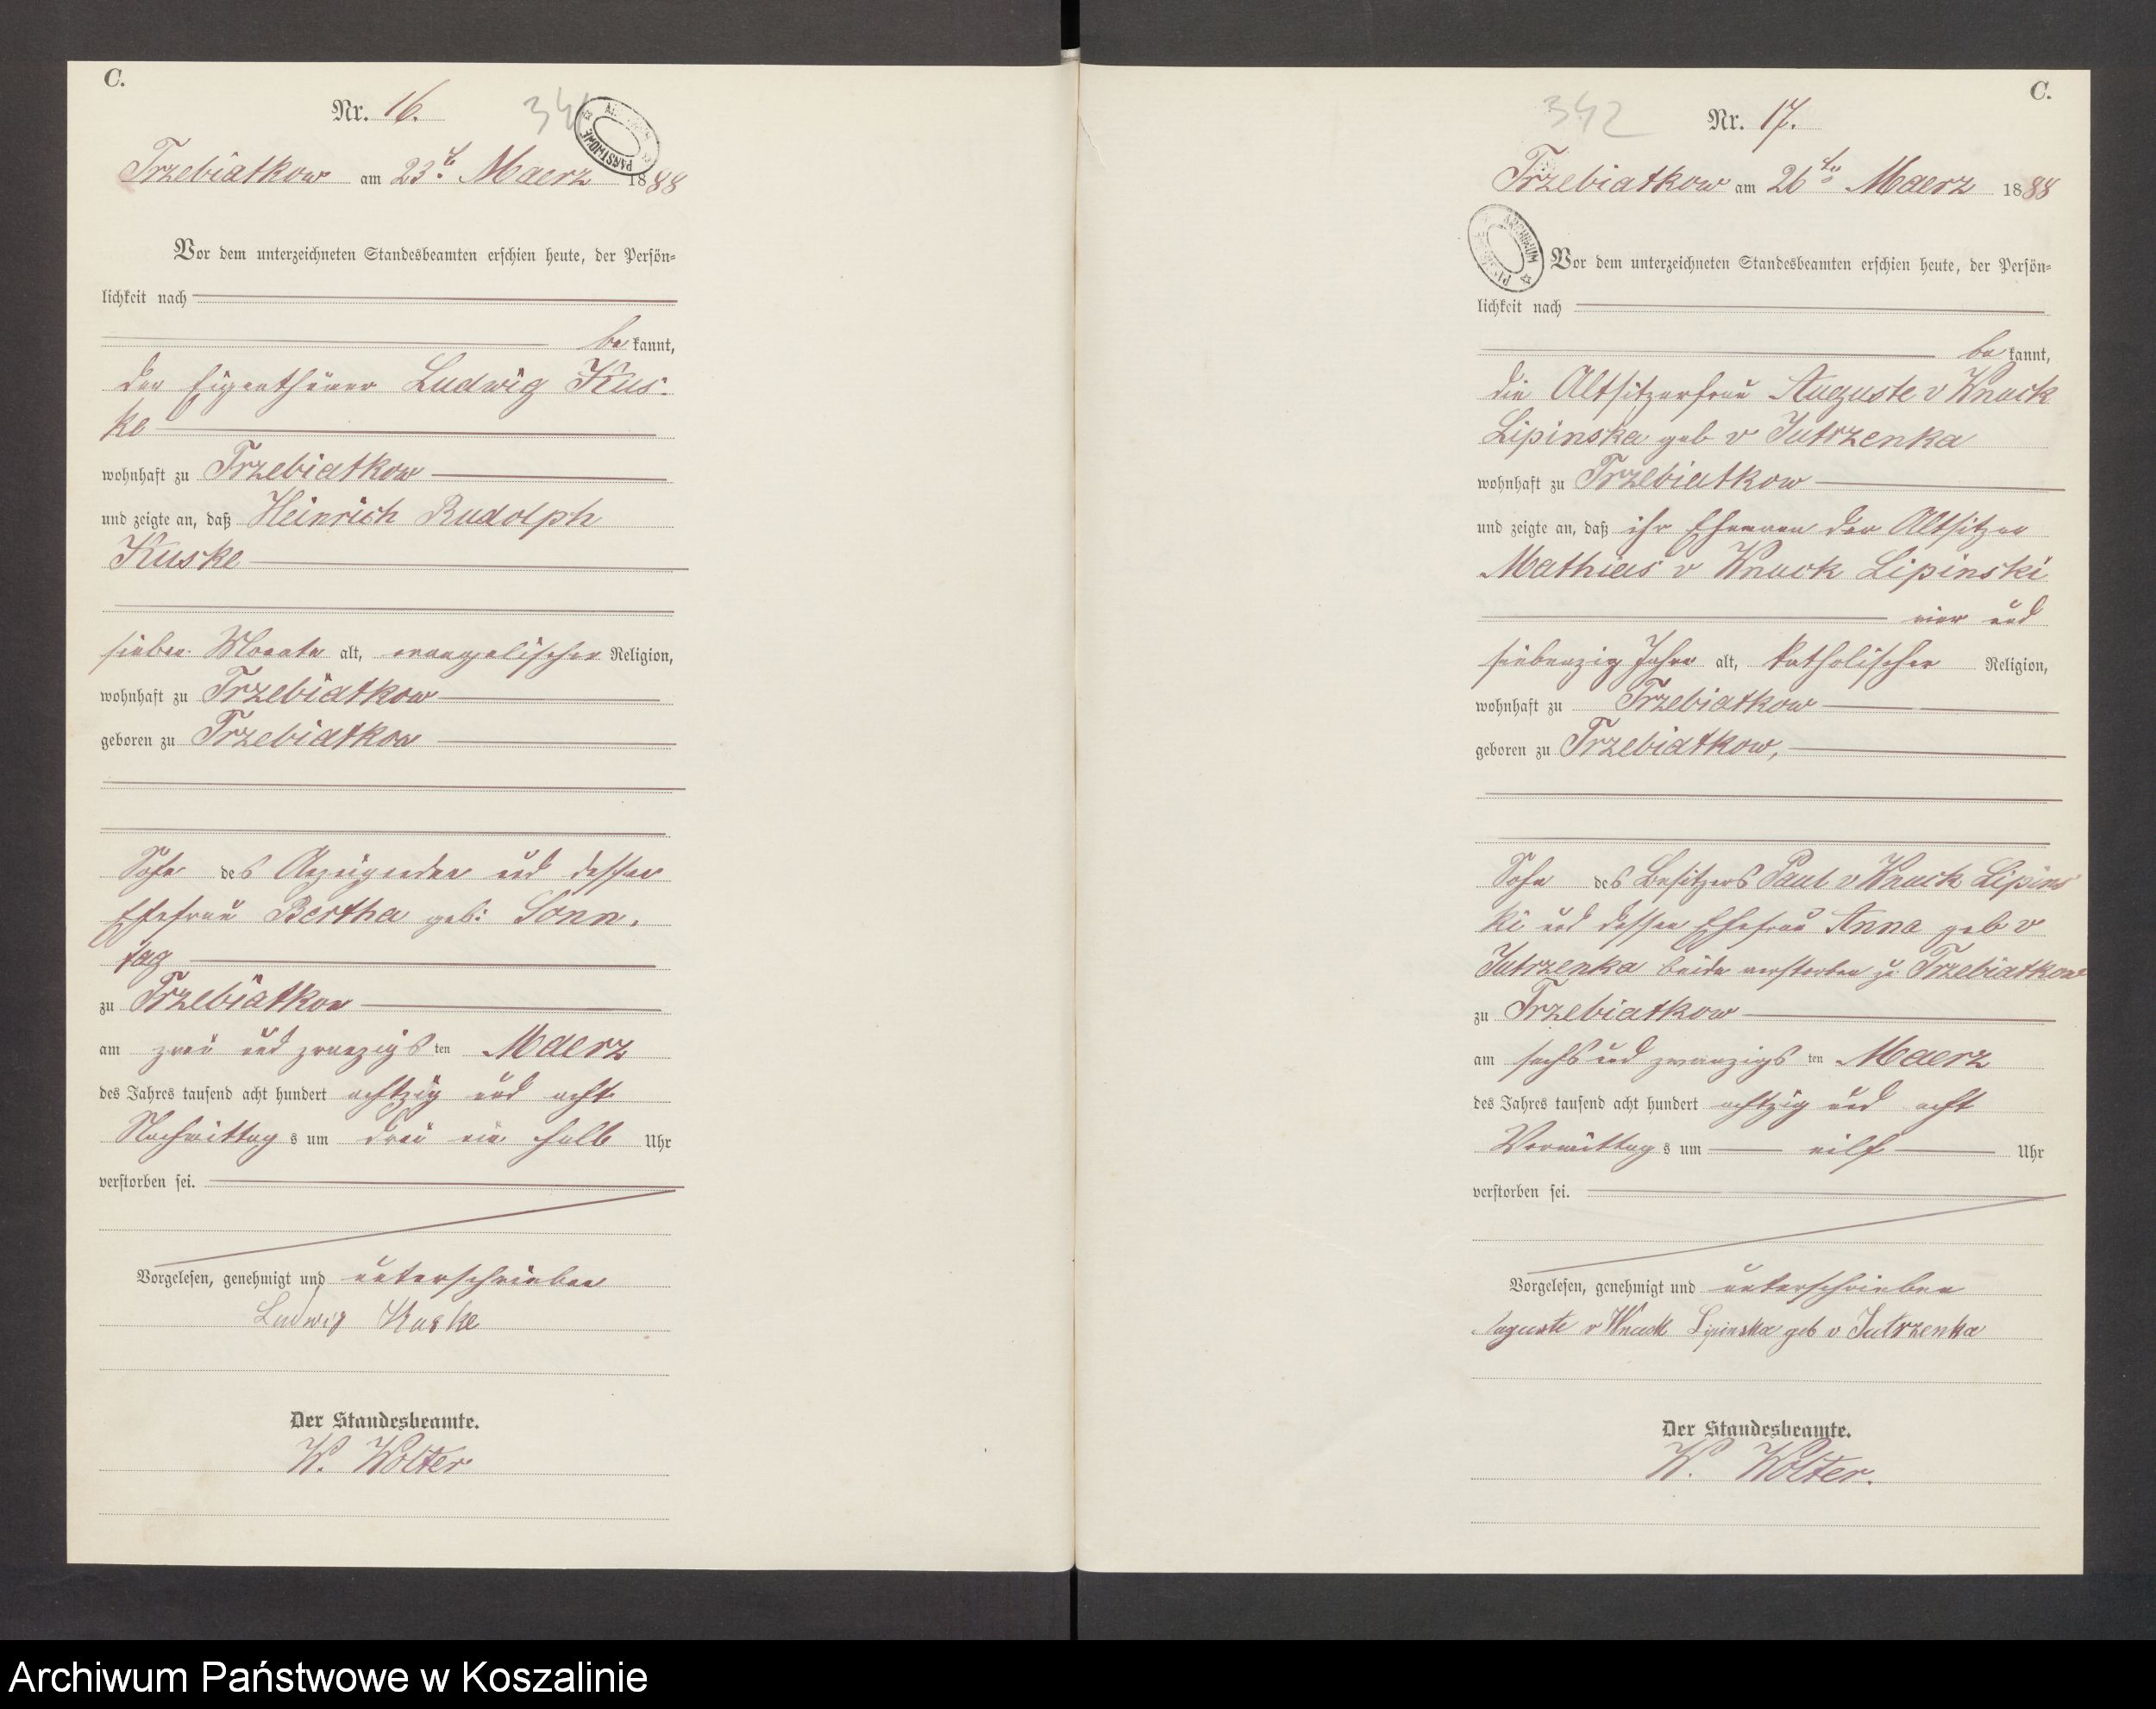 C.
Nr. 16.
341
Trzebiatkow am 23ten Maerz 1888
Vor dem unterzeichneten Standesbeamten erschien heute, der Persön-
lichkeit nach
bekannt,
der Eigenthümer Ludwig Kus-
ke
wohnhaft zu Trzebiatkow
und zeigte an, daß Heinrich Rudolph
Kuske
sieben Monate alt, evangelischer Religion,
wohnhaft zu Trzebiatkow
geboren zu Trzebiatkow
Sohn des Anzeigenden und dessen
Ehefrau Bertha geb: Sonn-
tag
zu Trzebiatkow
am zwei und zwanzigs ten Maerz
des Jahres tausend acht hundert achtzig und acht
Nachmittag s um drei ein halb Uhr
verstorben sei.
Vorgelesen, genehmigt und unterschrieben
Ludwig Kuske
Der Standesbeamte.
W. Wolter
C.
342
Nr. 17.
Trzebiatkow am 26ten Maerz 1888
ARCHIWUM
Vor dem unterzeichneten Standesbeamten erschien heute, der Persön-
lichkeit nach
bekannt,
die Altsitzerfrau Auguste v Wnuck
Lipinska geb v Jutrzenka
wohnhaft zu Trzebiatkow
und zeigte an, daß ihr Ehemann der Altsitzer
Mathias v Wnuck Lipinski
vier und
siebenzig Jahre alt, katholischer Religion,
wohnhaft zu Trzebiatkow
geboren zu Trzebiatkow,
Sohn des Besitzers Paul v Wnuck Lipins
ki und dessen Ehefrau Anna geb v
Jutrzenka beide verstorben zu Trzebiatkow
zu Trzebiatkow
am sechs und zwanzigs ten Maerz
des Jahres tausend acht hundert achtzig und acht
Vormittag s um eilf Uhr
verstorben sei.
Vorgelesen, genehmigt und unterschrieben
Auguste v Wnuck Lipinska geb v Jutrzenka
Der Standesbeamte.
W. Wolter.
Archiwum Państwowe w Koszalinie